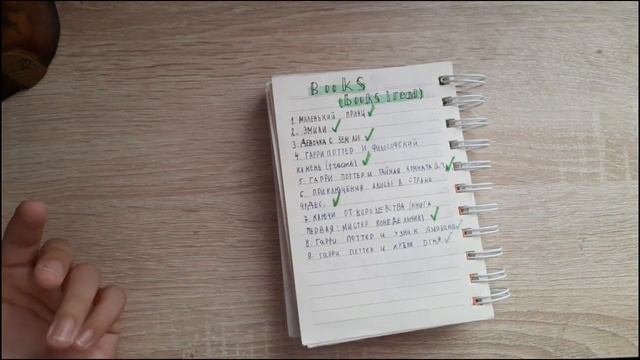 Books
(Books I read)
1. маленький принц
2. Эмили
3. Девочка с Земли
4. Гарри Поттер и философский
камень (1 часть)
5. Гарри Поттер и тайная комната
6. приключения Алисы в стране
чудес.
7. Ключи от королевства (книга
первая: мистер понедельник)
8. Гарри Поттер и узник Азкабана
9. Гарри Поттер и кубок огня